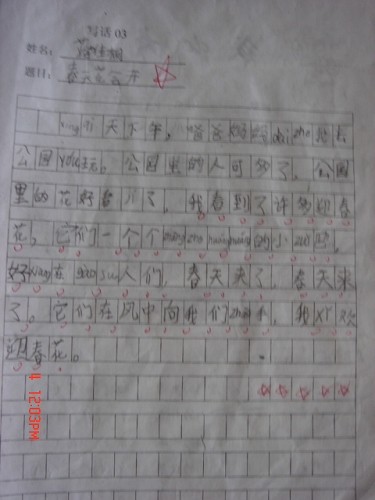 写话 03
姓名：
题目：春天花会开
xīng qī 天下午，爸爸妈妈 dài zhe 我去
公园 yóu 玩，公园里的人可多了，公园
里的花好看 jí 了，我看到了许多迎春
花，它们一个个 zhāng zhe huáng huáng 的小 zuǐ 巴，
好 xiàng 在 gào su 人们，春天来了，春天来
了。它们在风中向我们 zhāo 手，我 xǐ 欢
迎春花。
12:03PM